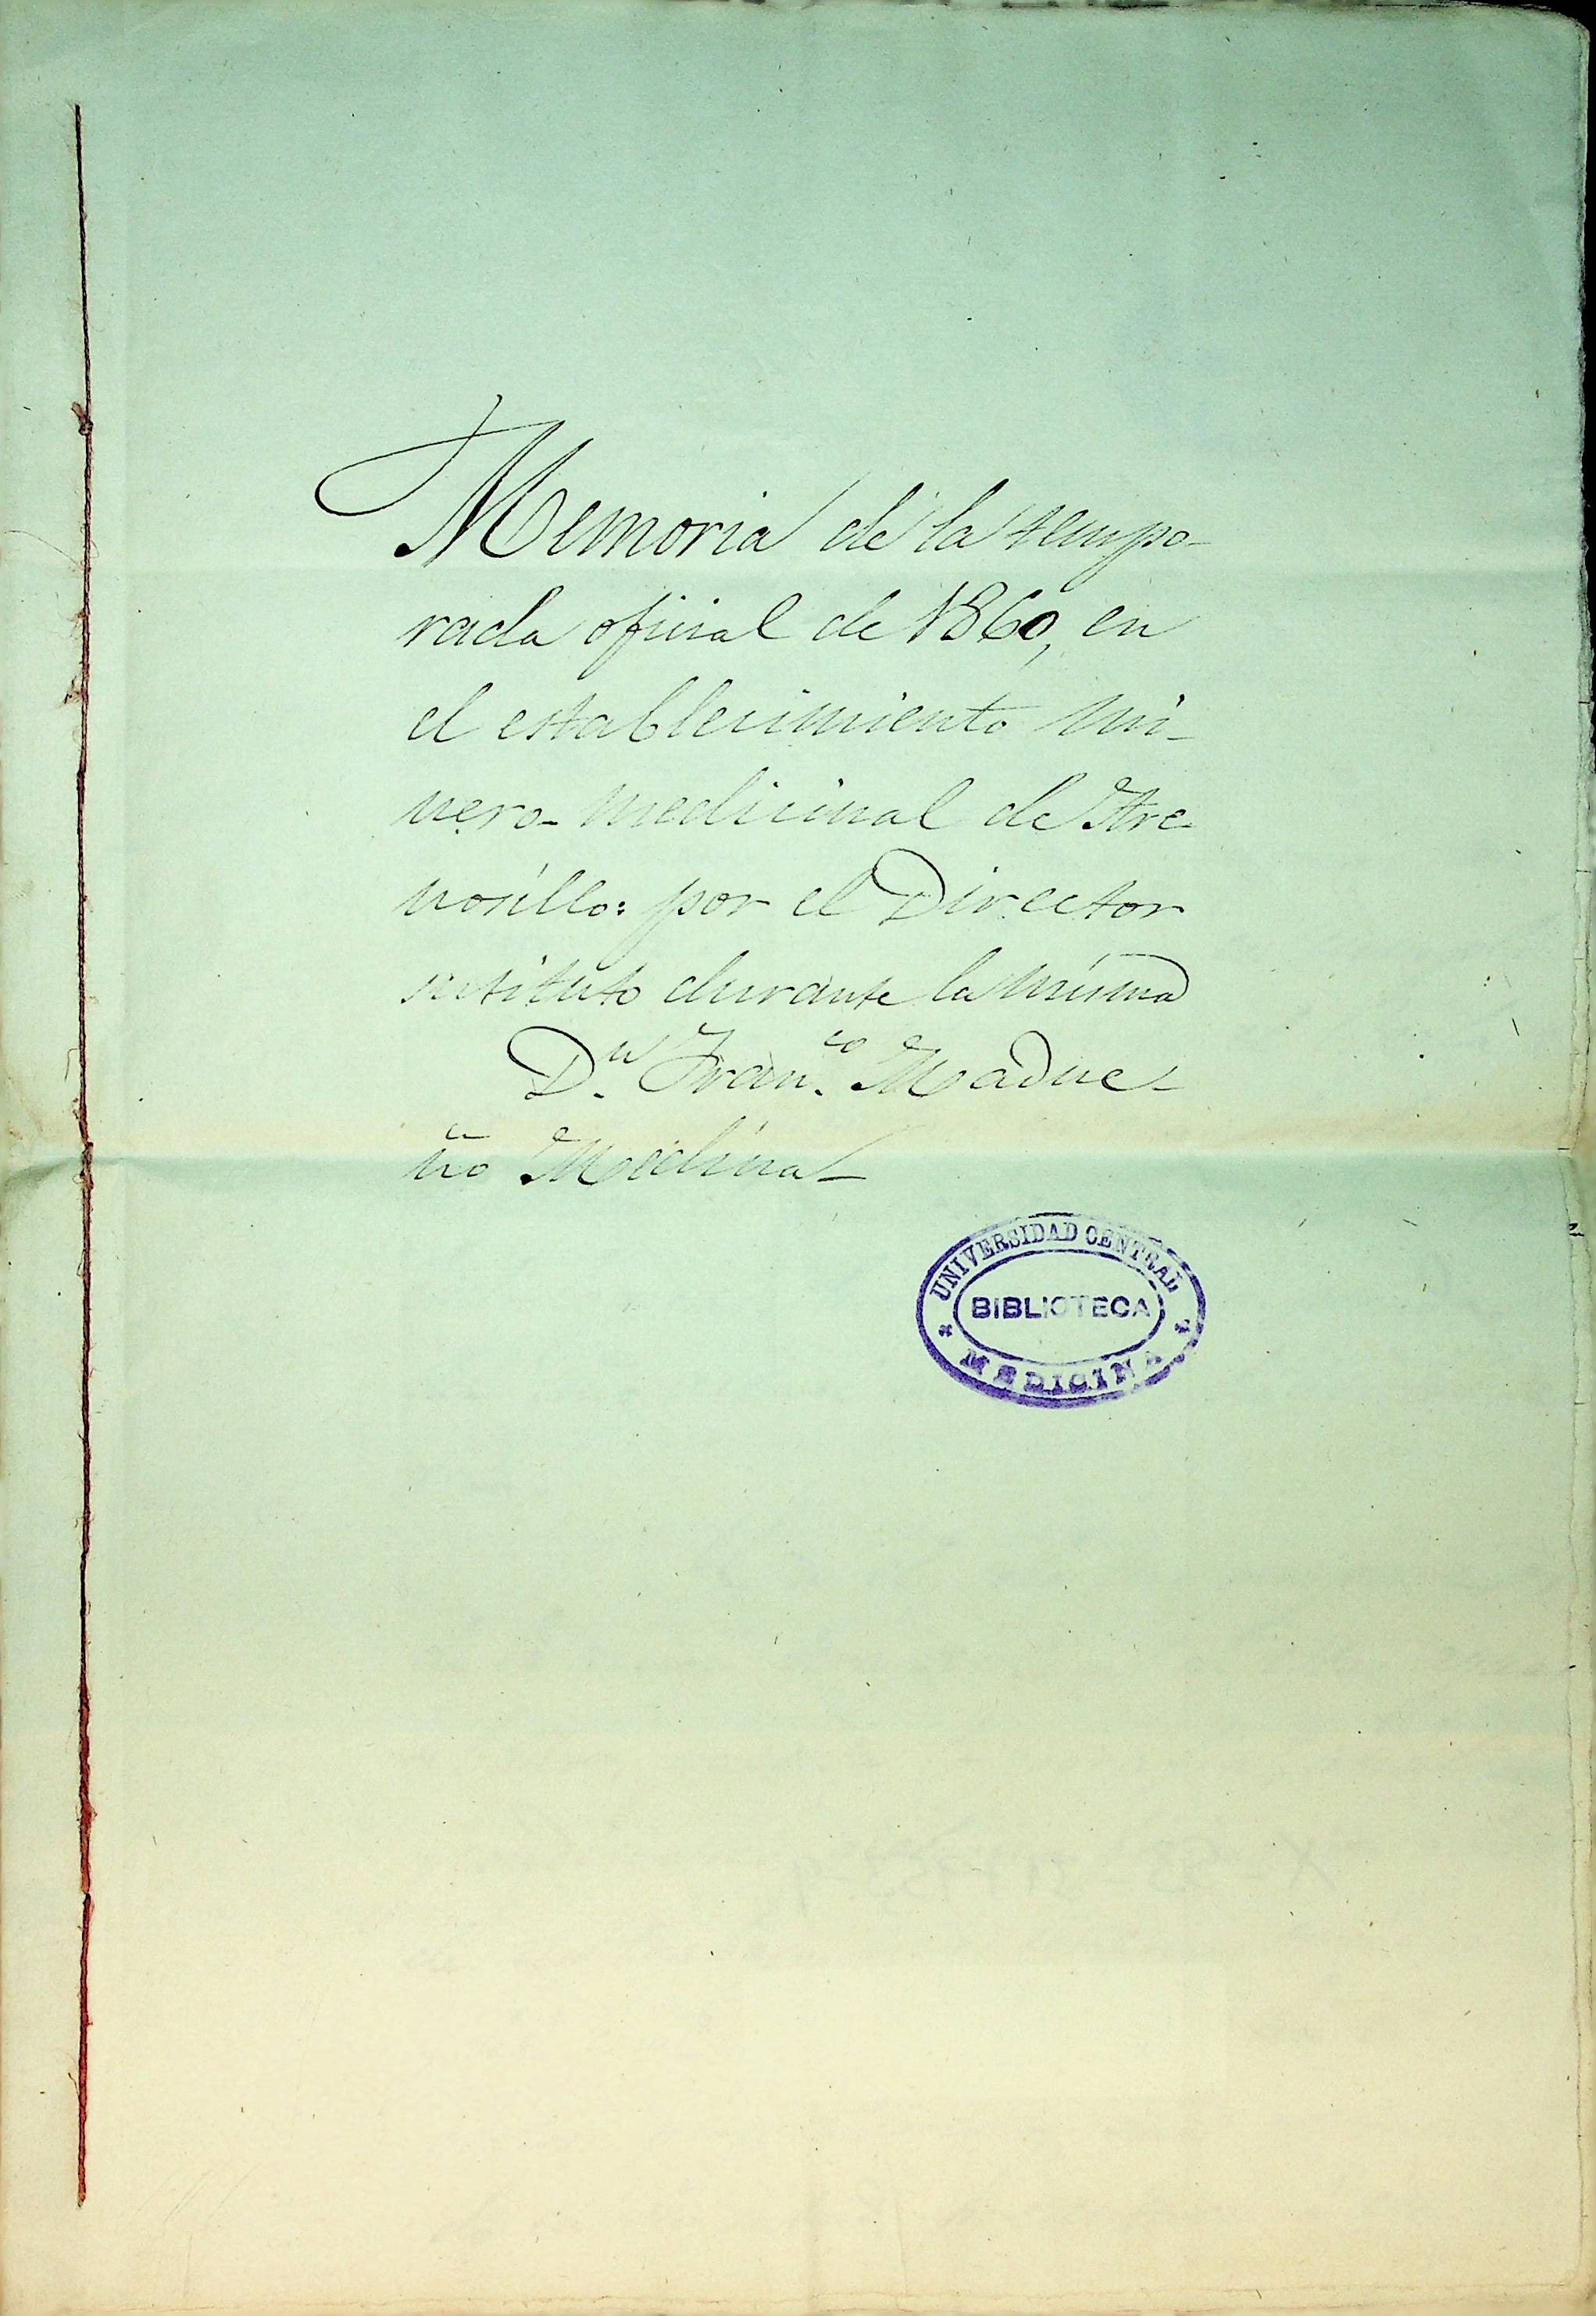 Memoria de la tempo-
rada oficial de 1860, en
el establecimiento mi-
nero-medicinal de Are-
nosillo: por el Director
sustituto durante la misma
D.n Fran.co Madue-
ño Medina
UNIVERSIDAD CENTRAL
BIBLIOTECA
MEDICINA